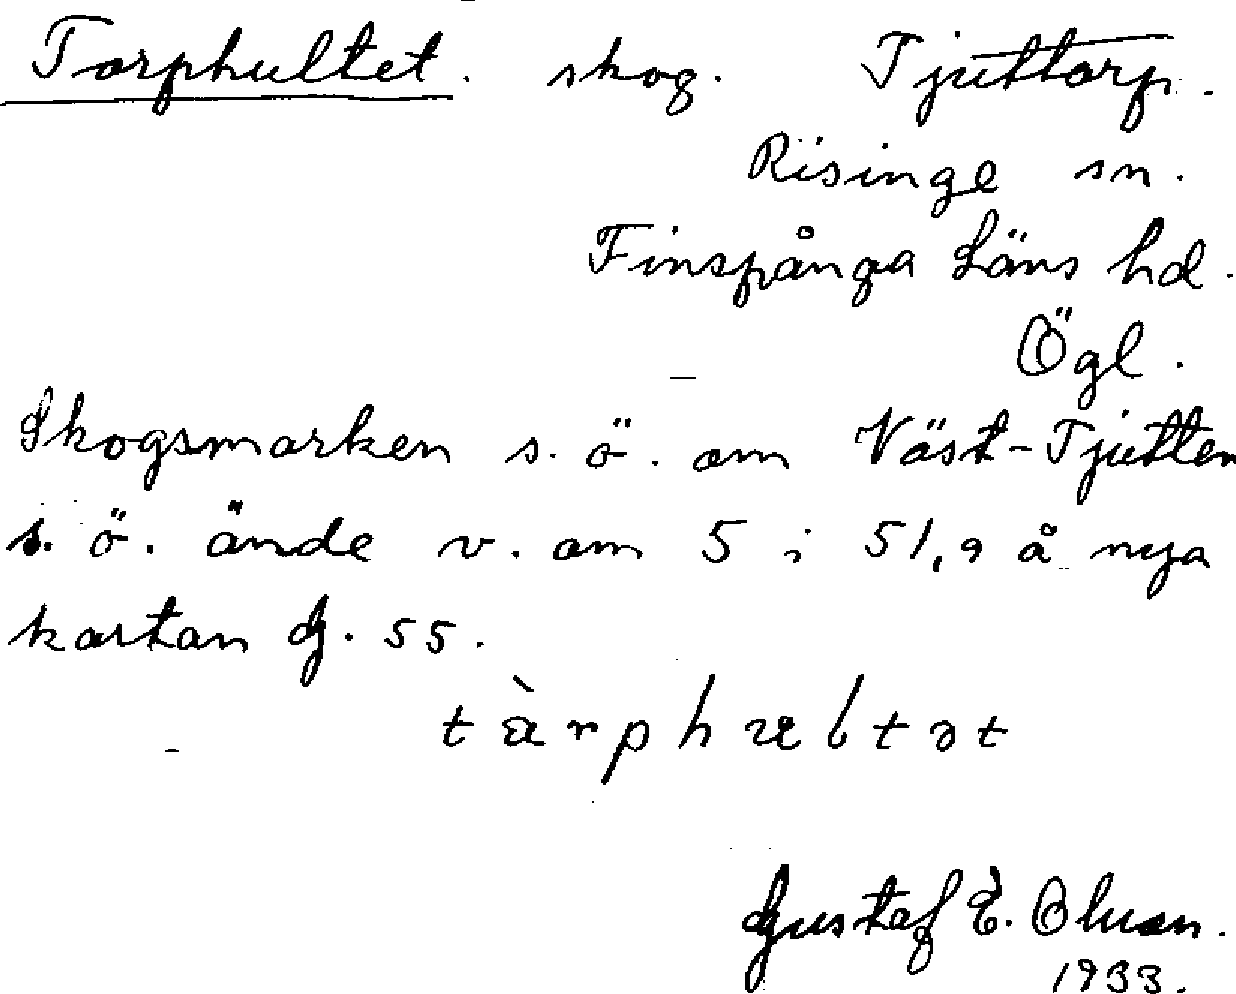 Torphultet. skog. Tjuttorp.
Risinge sn.
Finspånga Läns hd.
Ögl.
Skogsmarken s.ö. om Väst-Tjutten
s.ö. ände v. om 5 i 51,9 å nya
kartan G. 55.
Gustaf E. Olsson.
1933.